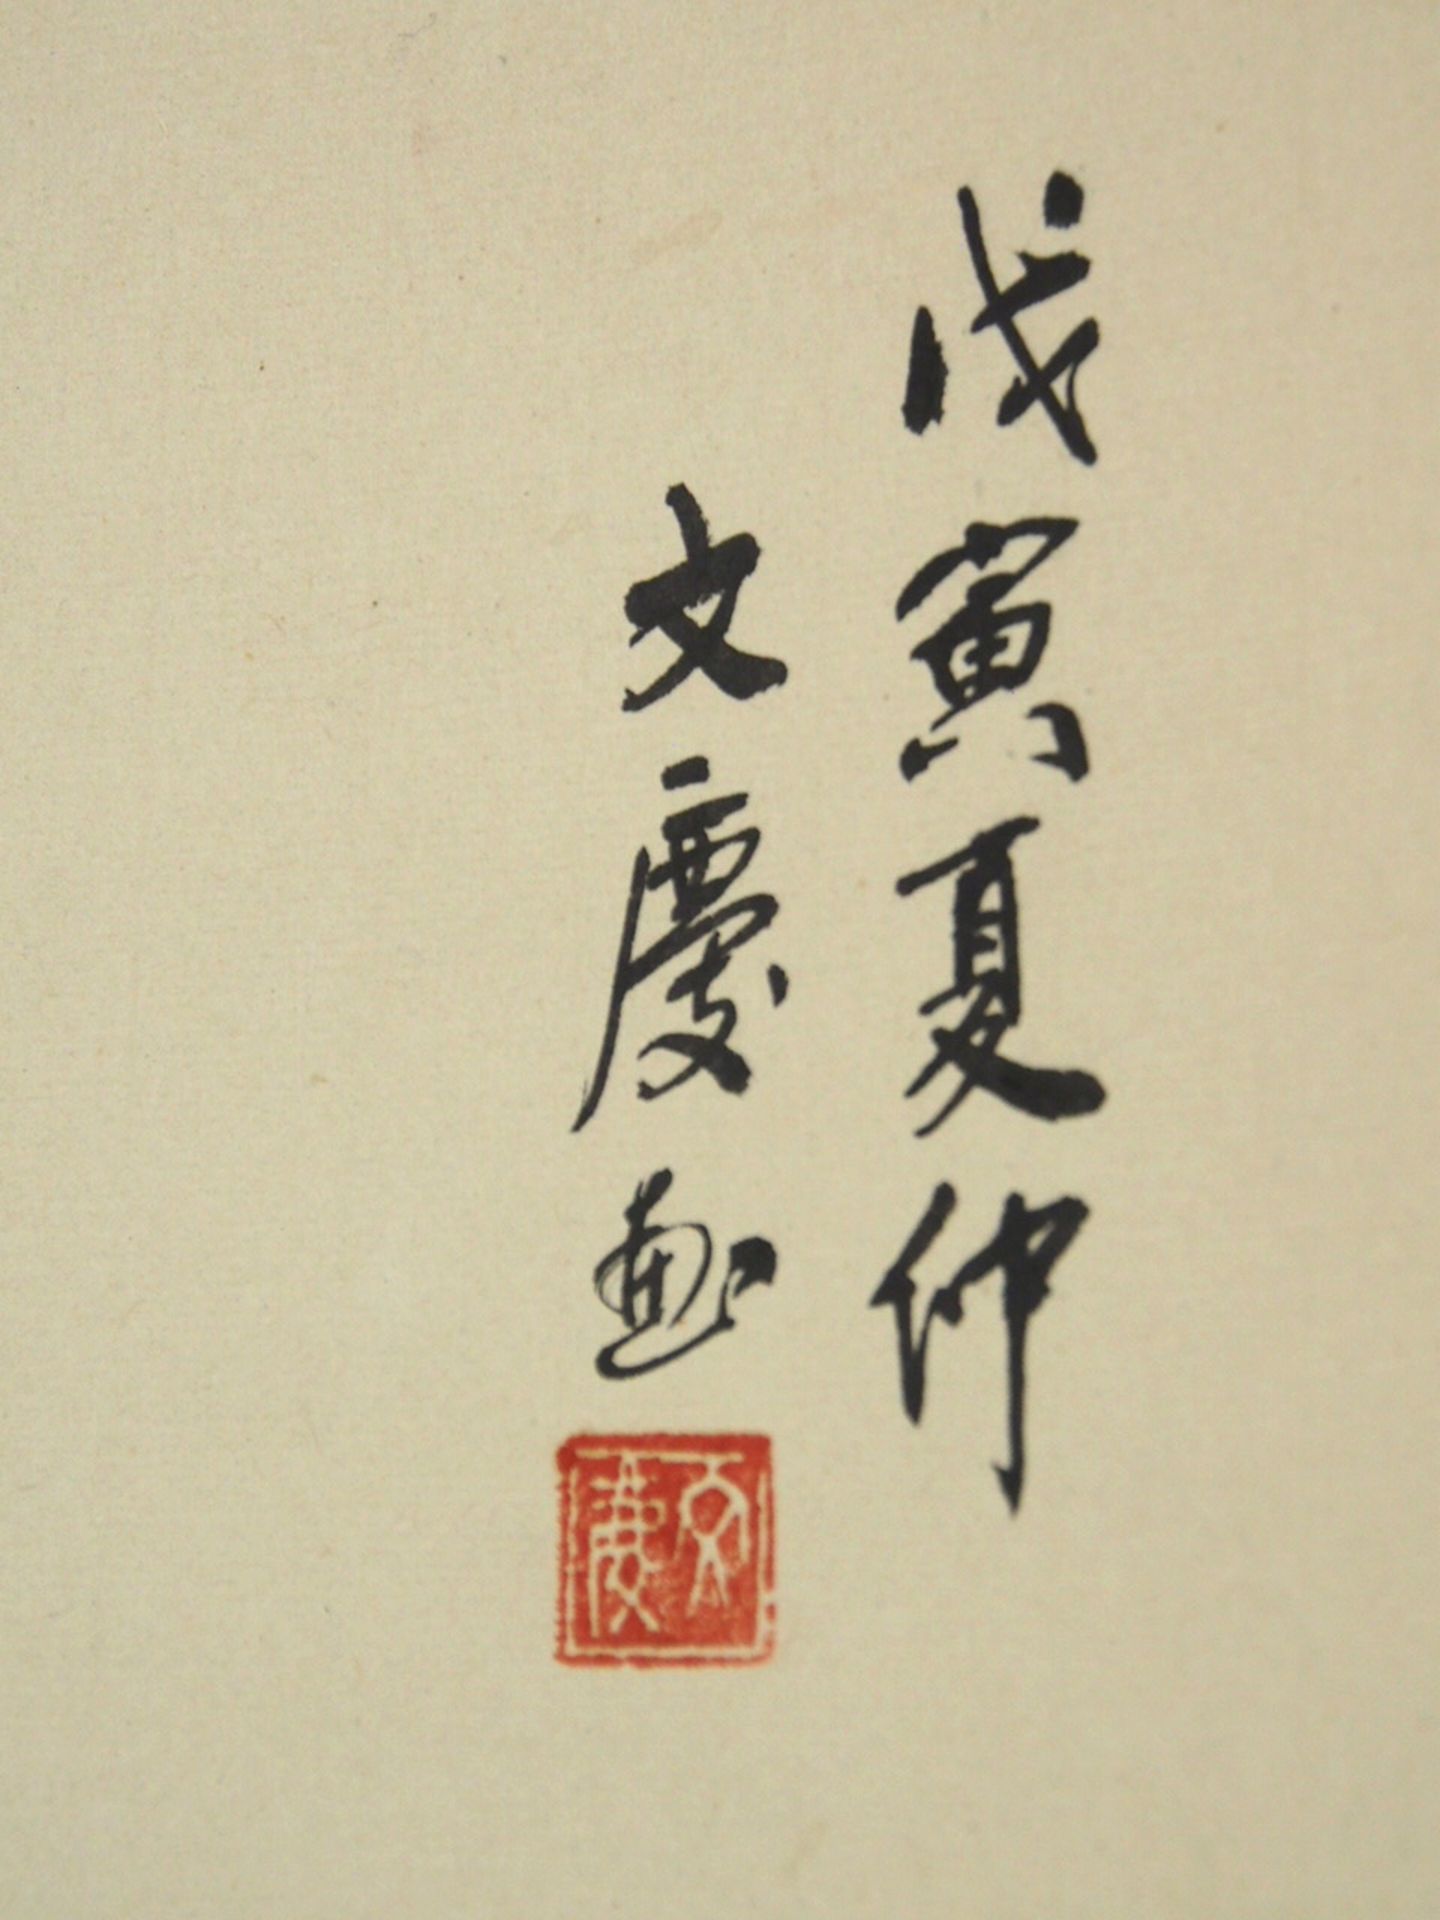 戊寅夏仲
文慶画
文慶